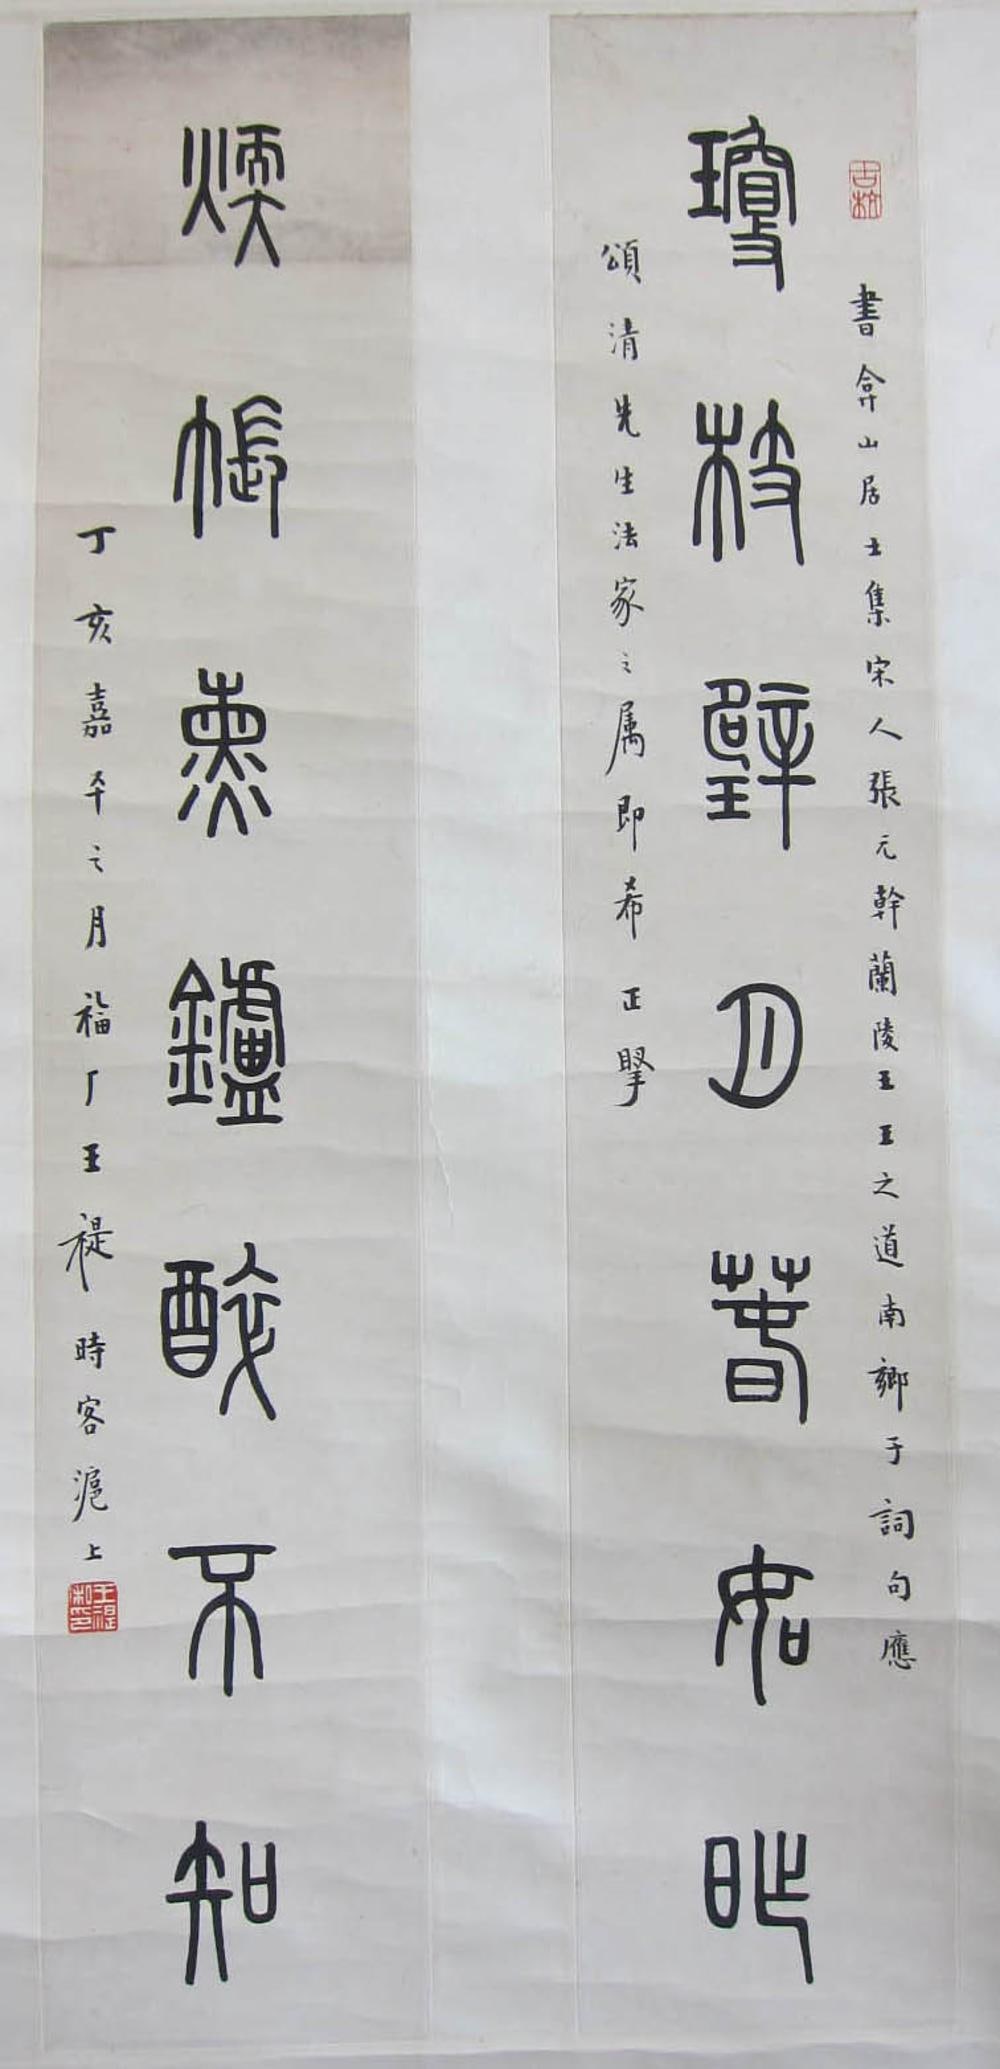 瓊枝璧月春如昨
書弇山居士集宋人張元幹蘭陵王王之道南鄉子詞句應
頌清先生法家之属即希正擥
煗帳熏鑪醉不知
丁亥嘉平之月福厂王禔時客滬上
王禔私印